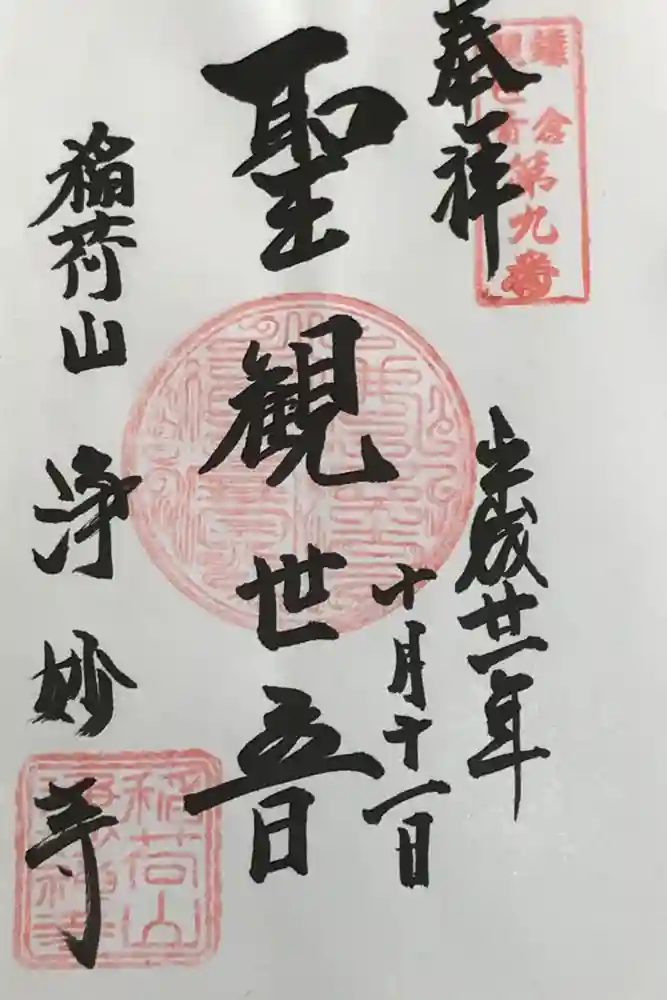 奉拝
鎌倉
観世音
第九番
平成廿一年
十月十一日
聖観世音
稲荷山 浄妙寺
稲荷山
浄妙禅寺